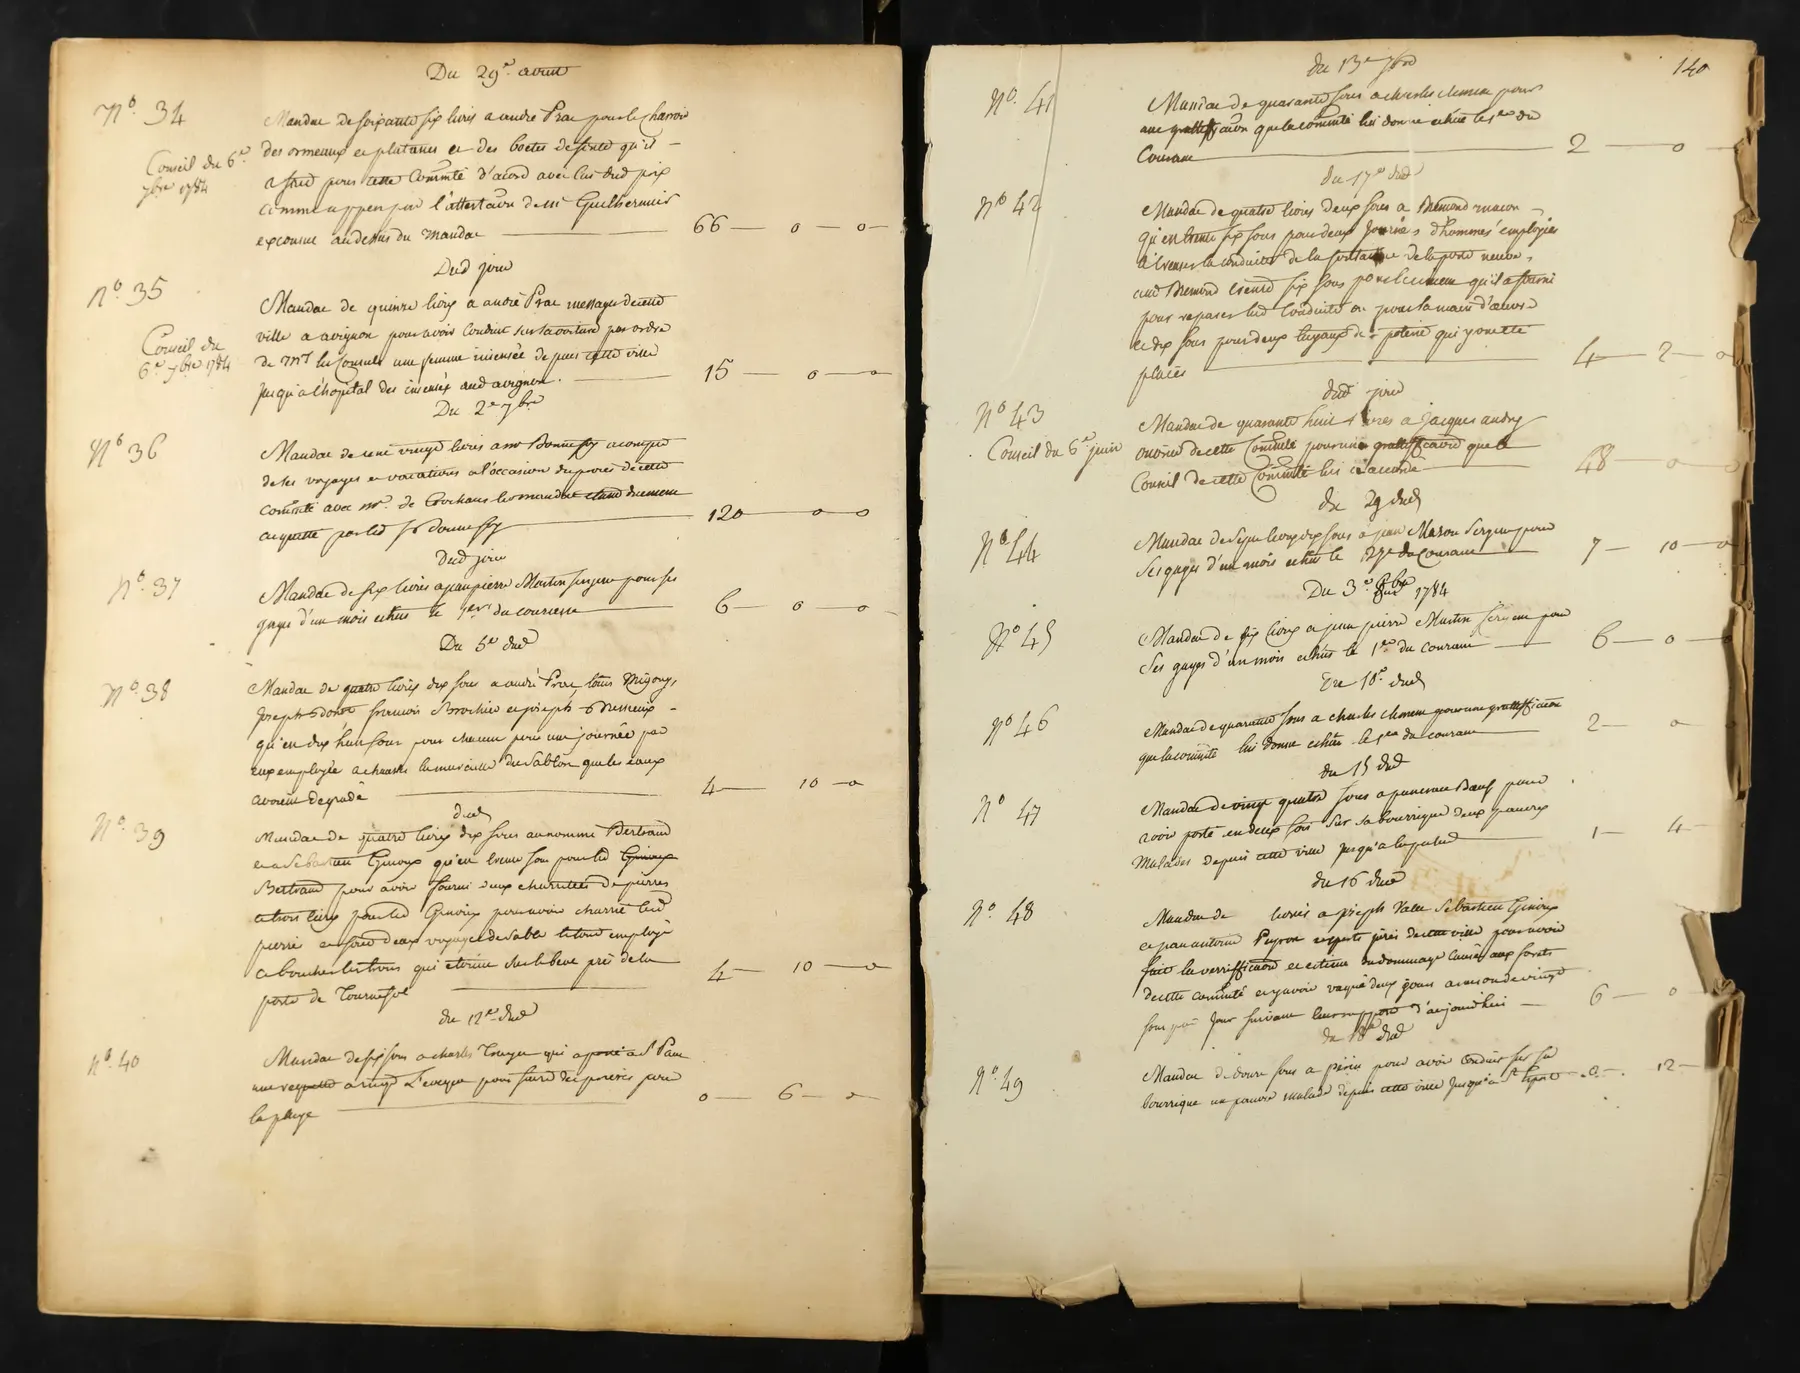 Du 29e aoust
No 34
Mandat de soixante six livres a andré Prac pour le Charroir
Conseil du 6e
7bre 1784
des ormeaux et platanes et des boetes de fonte qu'il
a fait pour cette Communté d'acord avec lui dud prix
comme appert par l'attestaôn de mr Guilhermier
excousul au dessus du mandat 66 — 0 — 0
Dud jour
No 35
Mandat de quinze livres a andré Prac messager de cette
Conseil du
6e 7bre 1784
ville a avignon pour avoir conduit sur sa voiture par ordre
de Mrs les Consuls une femme insensée depuis cette ville
jusqu'a l'hopital des insensés aud avignon. 15 — 0 — 0
Du 2e 7bre
No 36
Mandat de cent vingt livres a mr Bonnefoy acompte
de ses voyages et vacations a l'occasion du procès de cette
Comunté avec mr. de
acquitté par led sr Bonnefoy 120 — 0 — 0
Dud jour
No 37
Mandat de six livres a jean pierre Martin sergent pour ses
gages d'un mois echus le 1er du courant 6 — 0 — 0
Du 5e dud
No 38
Mandat de quatre livres dix sous a andré Prac, louis Migony,
Joseph francois Brochier et joseph
qu'en dix huit sous pour chacun pour une journée par
eux employée a du sablon que les eaux
avoient degradé 4 — 10 — 0
dud
No 39
Mandat de quatre livres dix sous au nommé Bertrand
et a Sebastien Genoux qu'en trente sou pour led Genoux
Bertrand pour avoir fourni deux charretées de pierres
et trois livres pour led Genoux pour avoir charrié lesd
pierres et fait deux voyages de sable le tout employé
a boucher les trous qui etoient sur le pavé près de la
porte de Tournefol 4 — 10 — 0
du 12e dud
No 40
Mandat de six sous a charles qui a porté a St Paul
une requette a mgr L'eveque pour faire des prieres pour
la pluye 0 — 6 — 0
140
du 13e 7bre
No 41
Mandat de quarante sous a charles clement pour
une grattiffication que la comunté lui donne echue le 1er du
Courant 2 — 0
du 17e dud
No 42
Mandat de quatre livres deux sous a Bremond macon
qu'en trente six sous pour deux journées d'hommes employées
a creuser la conduite de la fontaine de la porte neuve,
aud Bremond trente six sous pour le ciment qu'il a fourni
pour reparer lad conduite ou pour la main d'oeuvre
et dix sous pour deux tuyaux de poterie qu'y ont été
placés 4 — 2 — 0
dud jour
No 43
Mandat de quarante huit livres a jacques andry
Conseil du 6e juin
de cette Comunté pour une grattiffication que le
Conseil de cette Comunté lui a accordé 48 — 0 — 0
du 29 dud
No 44
Mandat de sept livres dix sous a jean Mason Sergent pour
ses gages d'un mois echus le 27e du Courant 7 — 10 — 0
Du 3e 8bre 1784
No 45
Mandat de six livres a jean pierre Martin sergent pour
ses gages d'un mois echus le 1er du courant 6 — 0 — 0
Du 10e dud
No 46
Mandat de quarante sous a charles clement pour une grattiffication
que la comunté lui donne echue le 1er du courant 2 — 0 — 0
du 15 dud
No 47
Mandat de vingt quatre sous a Bœuf pour
avoir porté en deux fois sur sa bourrique deux pauvres
malades depuis cette ville jusqu'a 1 — 4 —
du 16 dud
No 48
Mandat de livres a joseph Sebastien Genoux
et jean antoine Peyron experts jurés de cette ville pour avoir
fait la verriffication et estime du dommage causés aux forets
de cette comunté et y avoir vaqué deux jours a raison de vingt
sous par jour suivant leur rapport d'aujourd'hui 6 — 0 —
du 18e dud
No 49
Mandat de douze sous a pour avoir conduit sur sa
bourrique un pauvre malade depuis cette ville jusqu'a St 0 — 12 —